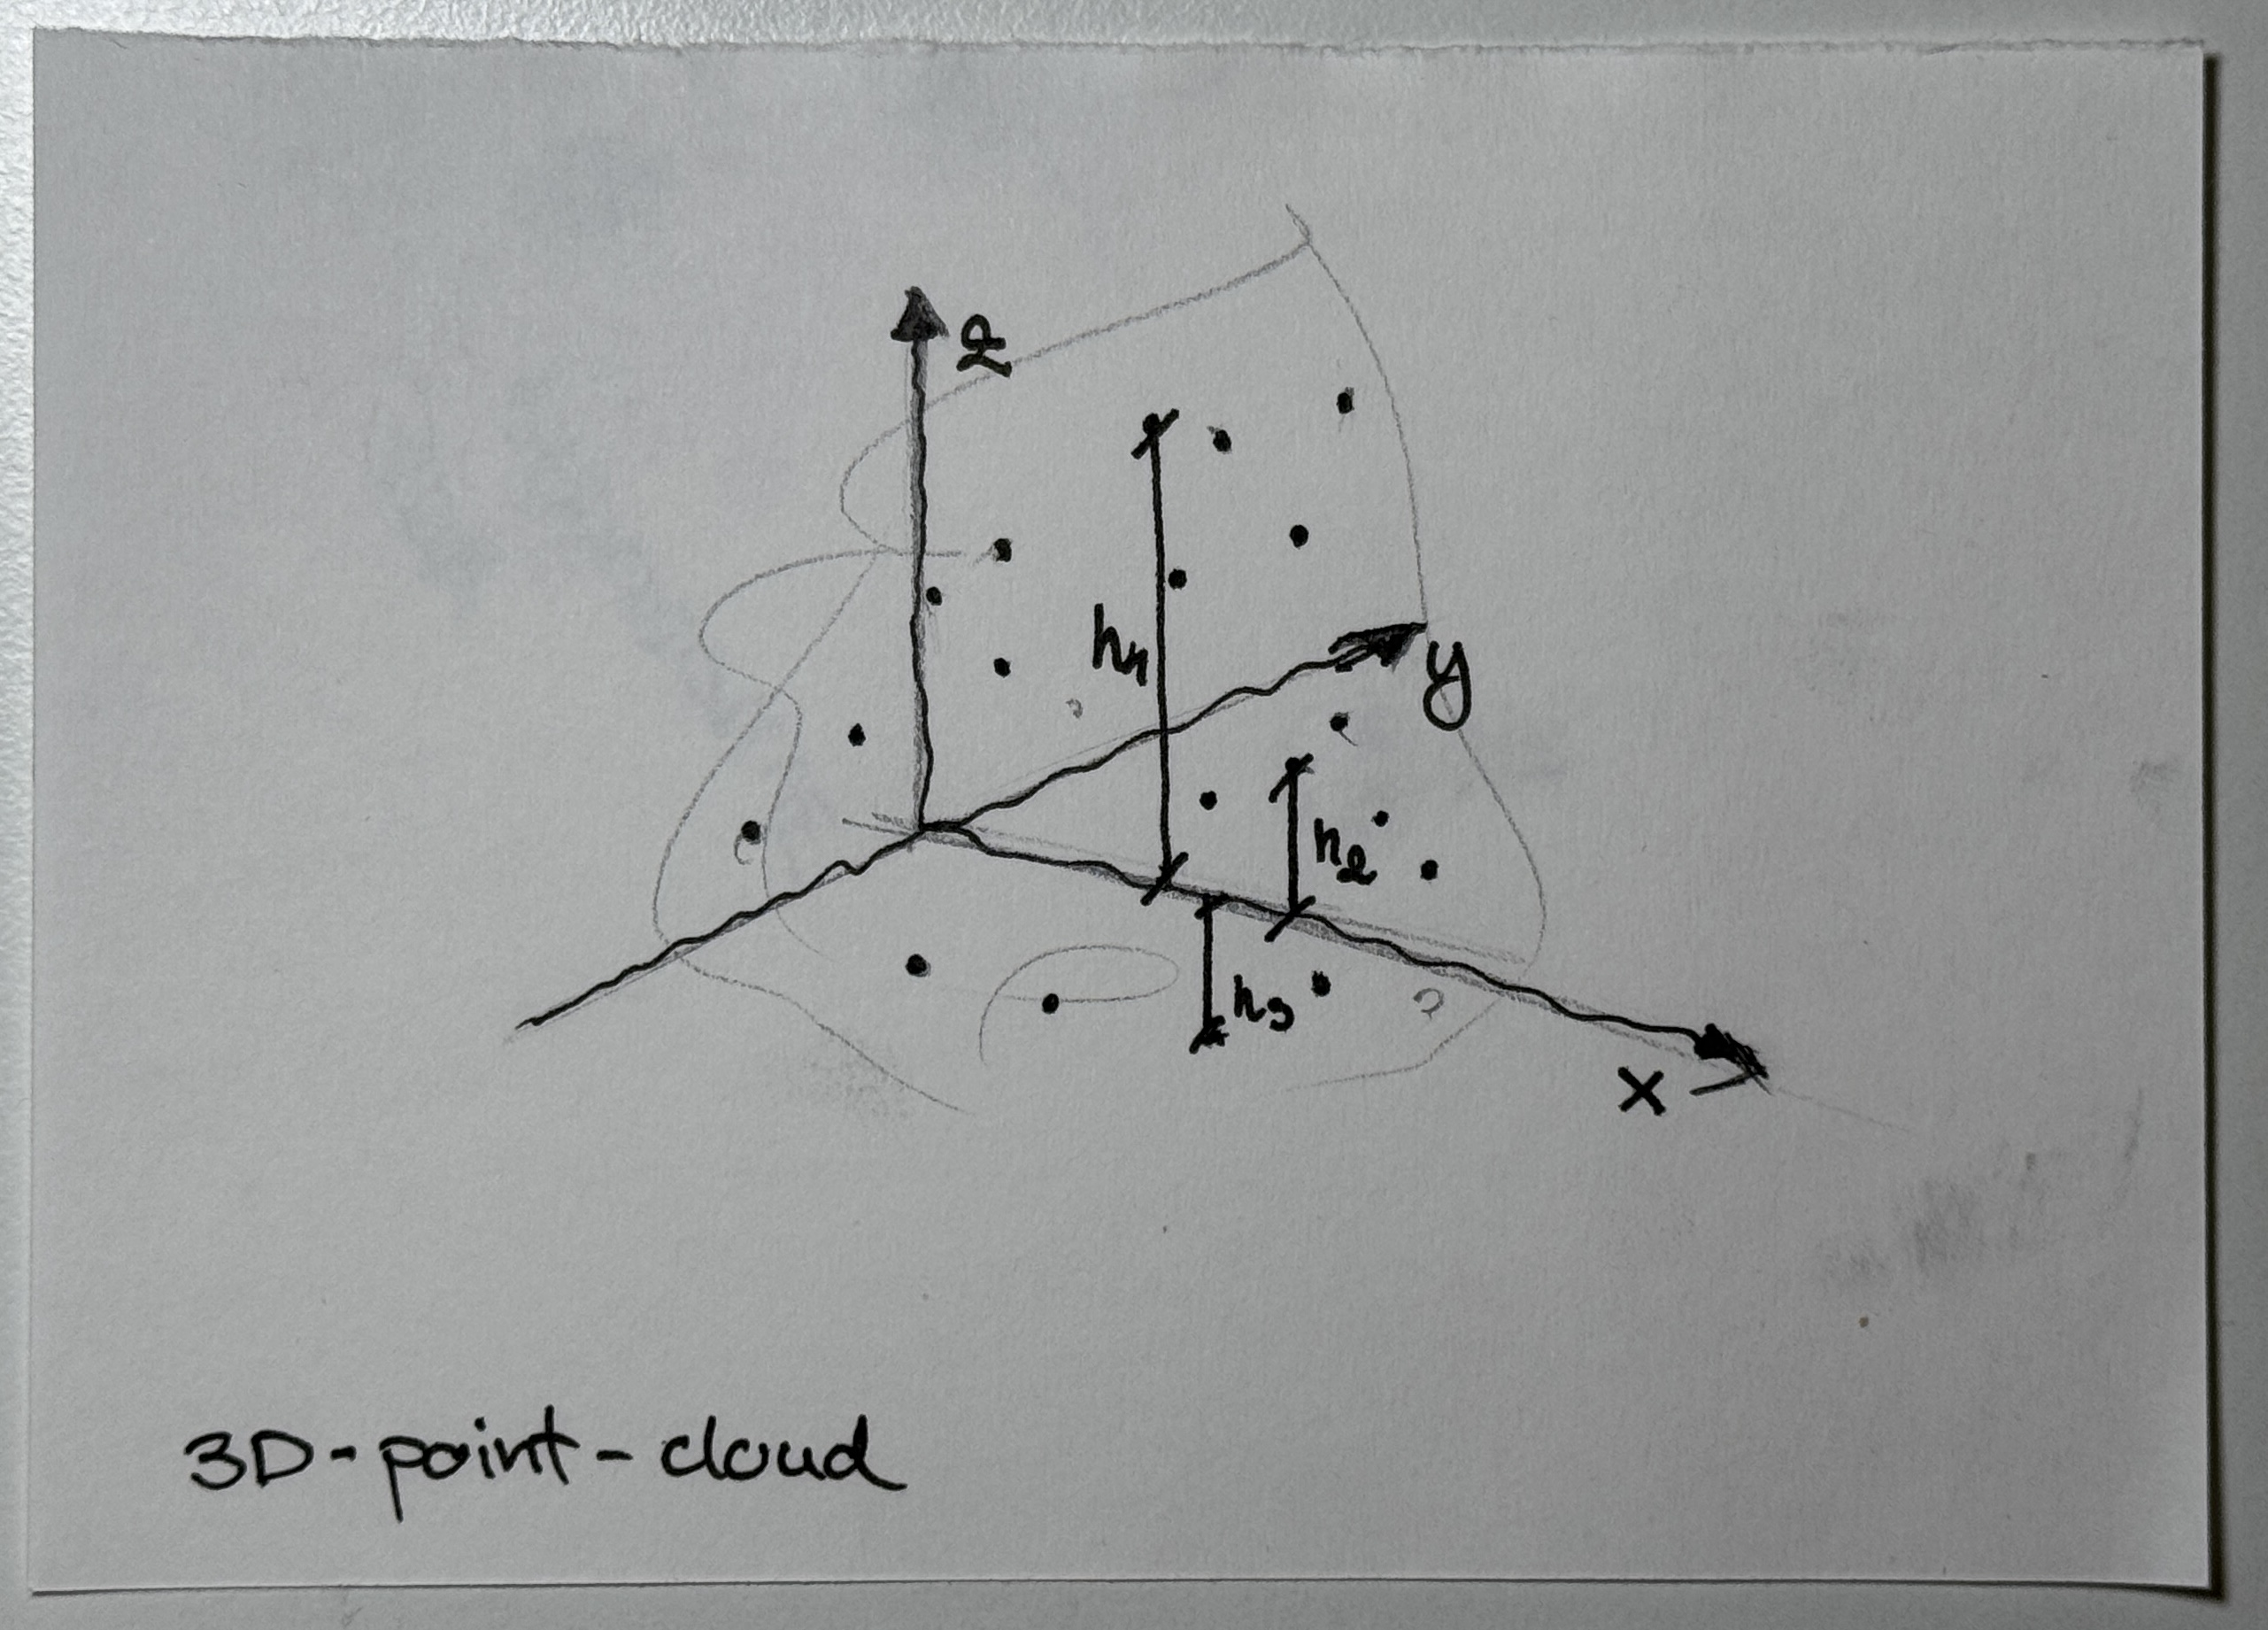 z
h1
y
h2
h3
x
3D-point-cloud